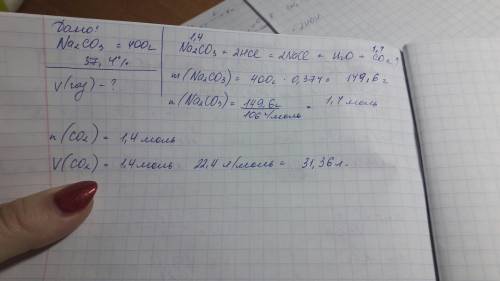 Дано:
Na₂CO₃ = 400г
37,4%
V(газ) - ?
1,4 1,4
Na₂CO₃ + 2HCl = 2NaCl + H₂O + CO₂↑
m(Na₂CO₃) = 400г · 0,374 = 149,6 г
n(Na₂CO₃) = 149,6г / 106 г/моль = 1,4 моль
n(CO₂) = 1,4 моль
V(CO₂) = 1,4 моль · 22,4 л/моль = 31,36 л.